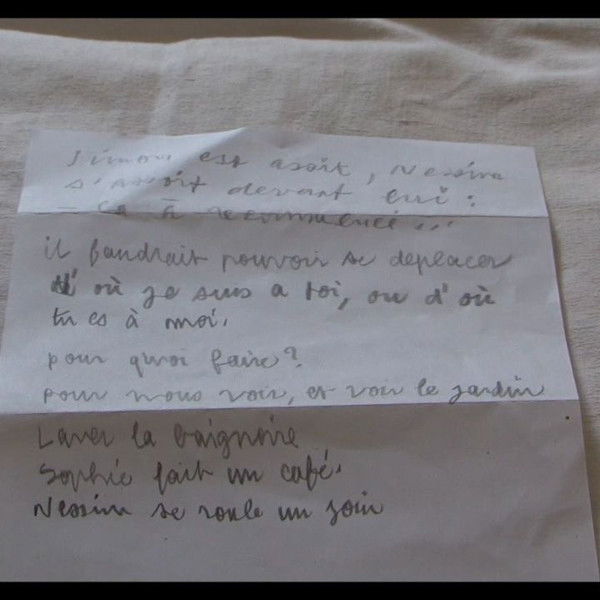 Simon est assit, Nessim
s'assoit devant lui :
- ça à recommencé...
il faudrait pouvoir se deplacer
d'où je suis a toi, ou d'où
tu es à moi.
pour quoi faire?
pour nous voir, et voir le jardin
Laver la baignoire
Sophie fait un café.
Nessim se roule un join